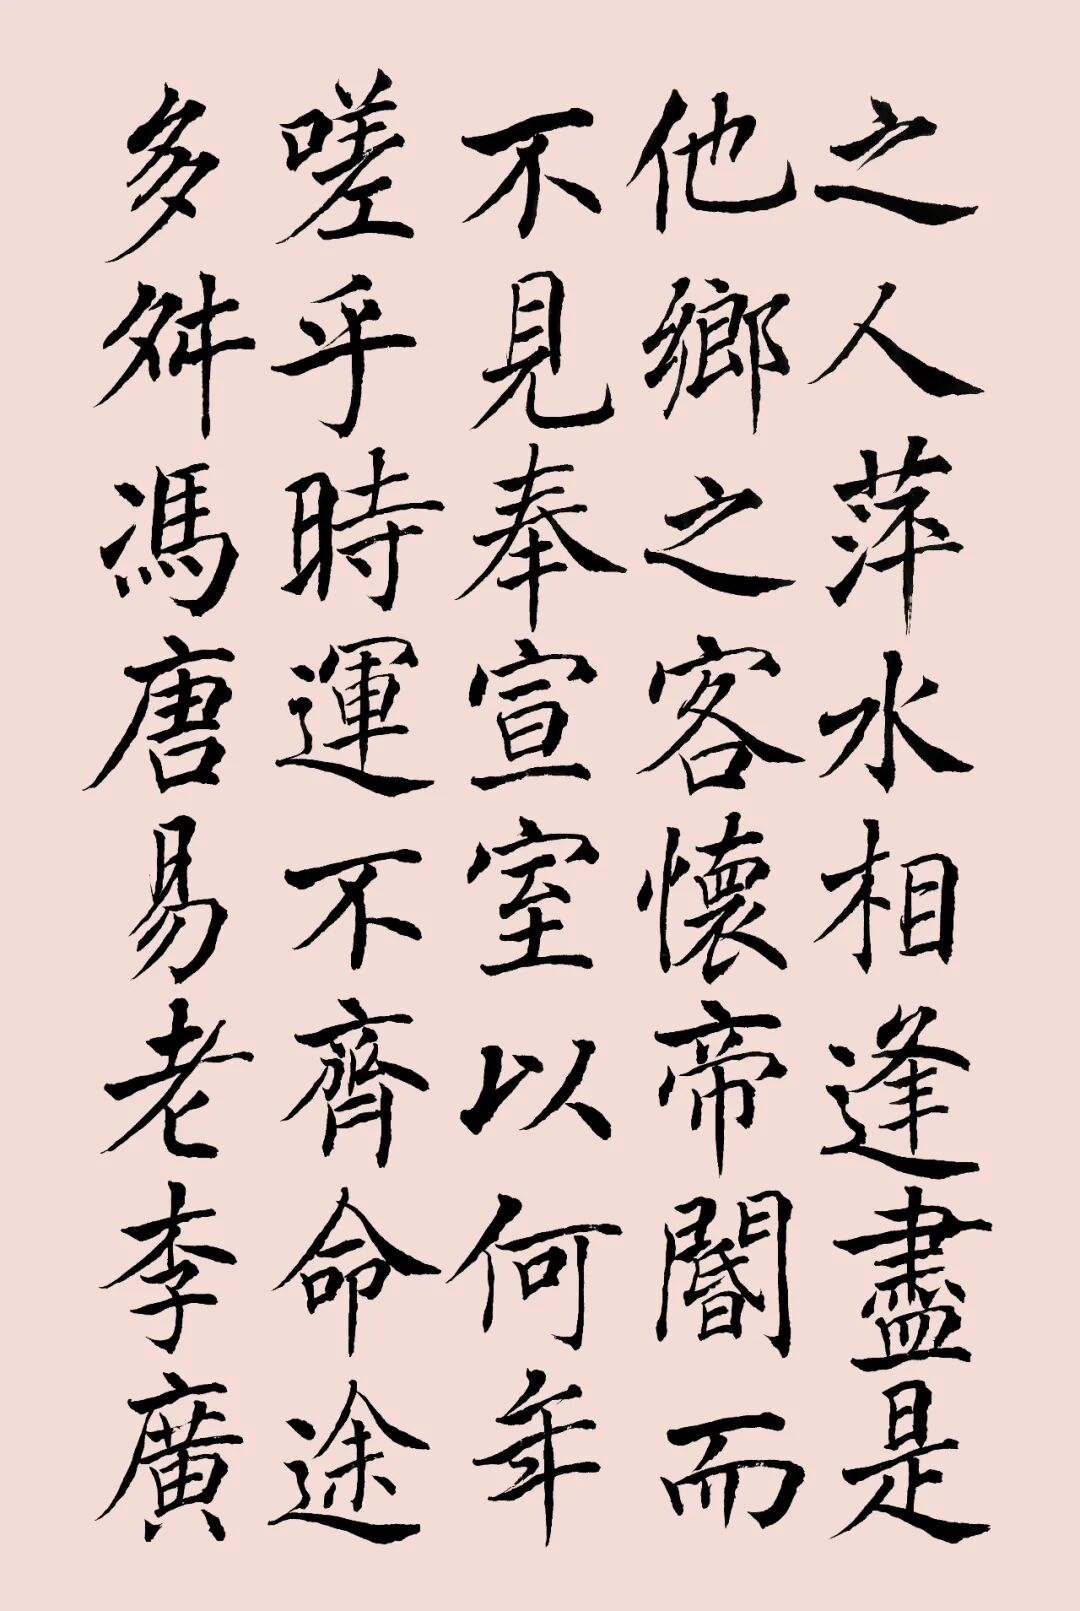 之人萍水相逢盡是
他鄉之客懷帝閽而
不見奉宣室以何年
嗟乎時運不齊命途
多舛馮唐易老李廣